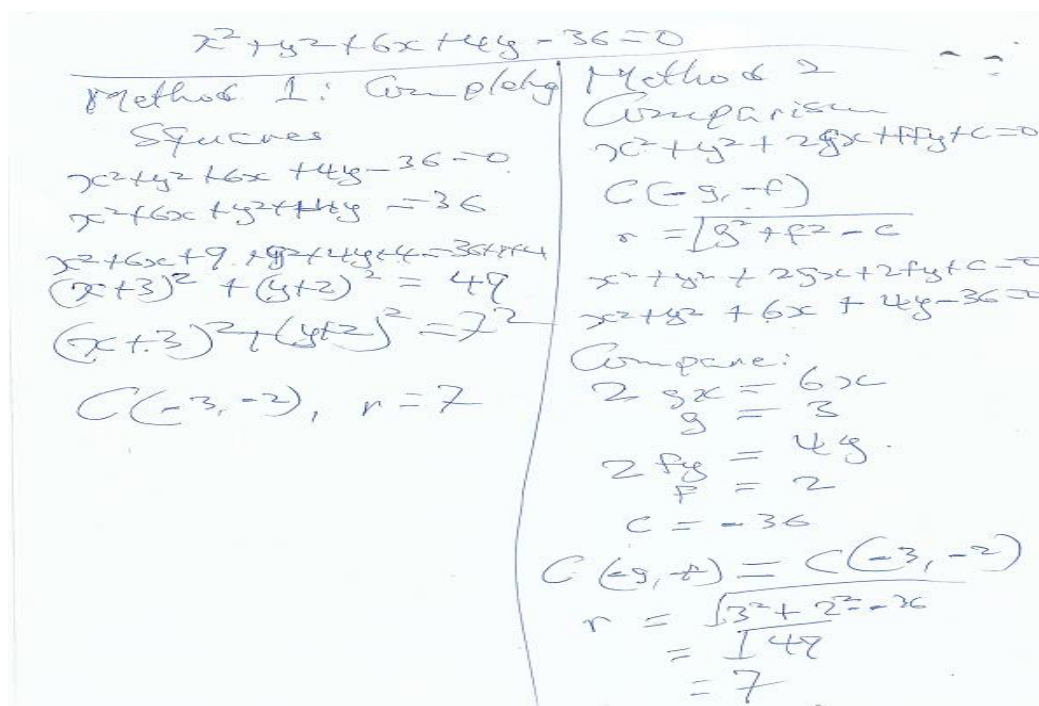 x² + y² + 6x + 4y - 36 = 0
Method 1: Completing
Squares
x² + y² + 6x + 4y - 36 = 0
x² + 6x + y² + 4y = 36
x² + 6x + 9 + y² + 4y + 4 = 36 + 9 + 4
(x+3)² + (y+2)² = 49
(x+3)² + (y+2)² = 7²
C(-3, -2), r = 7
Method 2
Comparison
x² + y² + 2gx + 2fy + c = 0
C(-g, -f)
r = √g² + f² - c
x² + y² + 2gx + 2fy + c = 0
x² + y² + 6x + 4y - 36 = 0
Compare:
2gx = 6x
g = 3
2fy = 4y.
f = 2
c = -36
C(-g, -f) = C(-3, -2)
r = √3² + 2² - -36
= √49
= 7